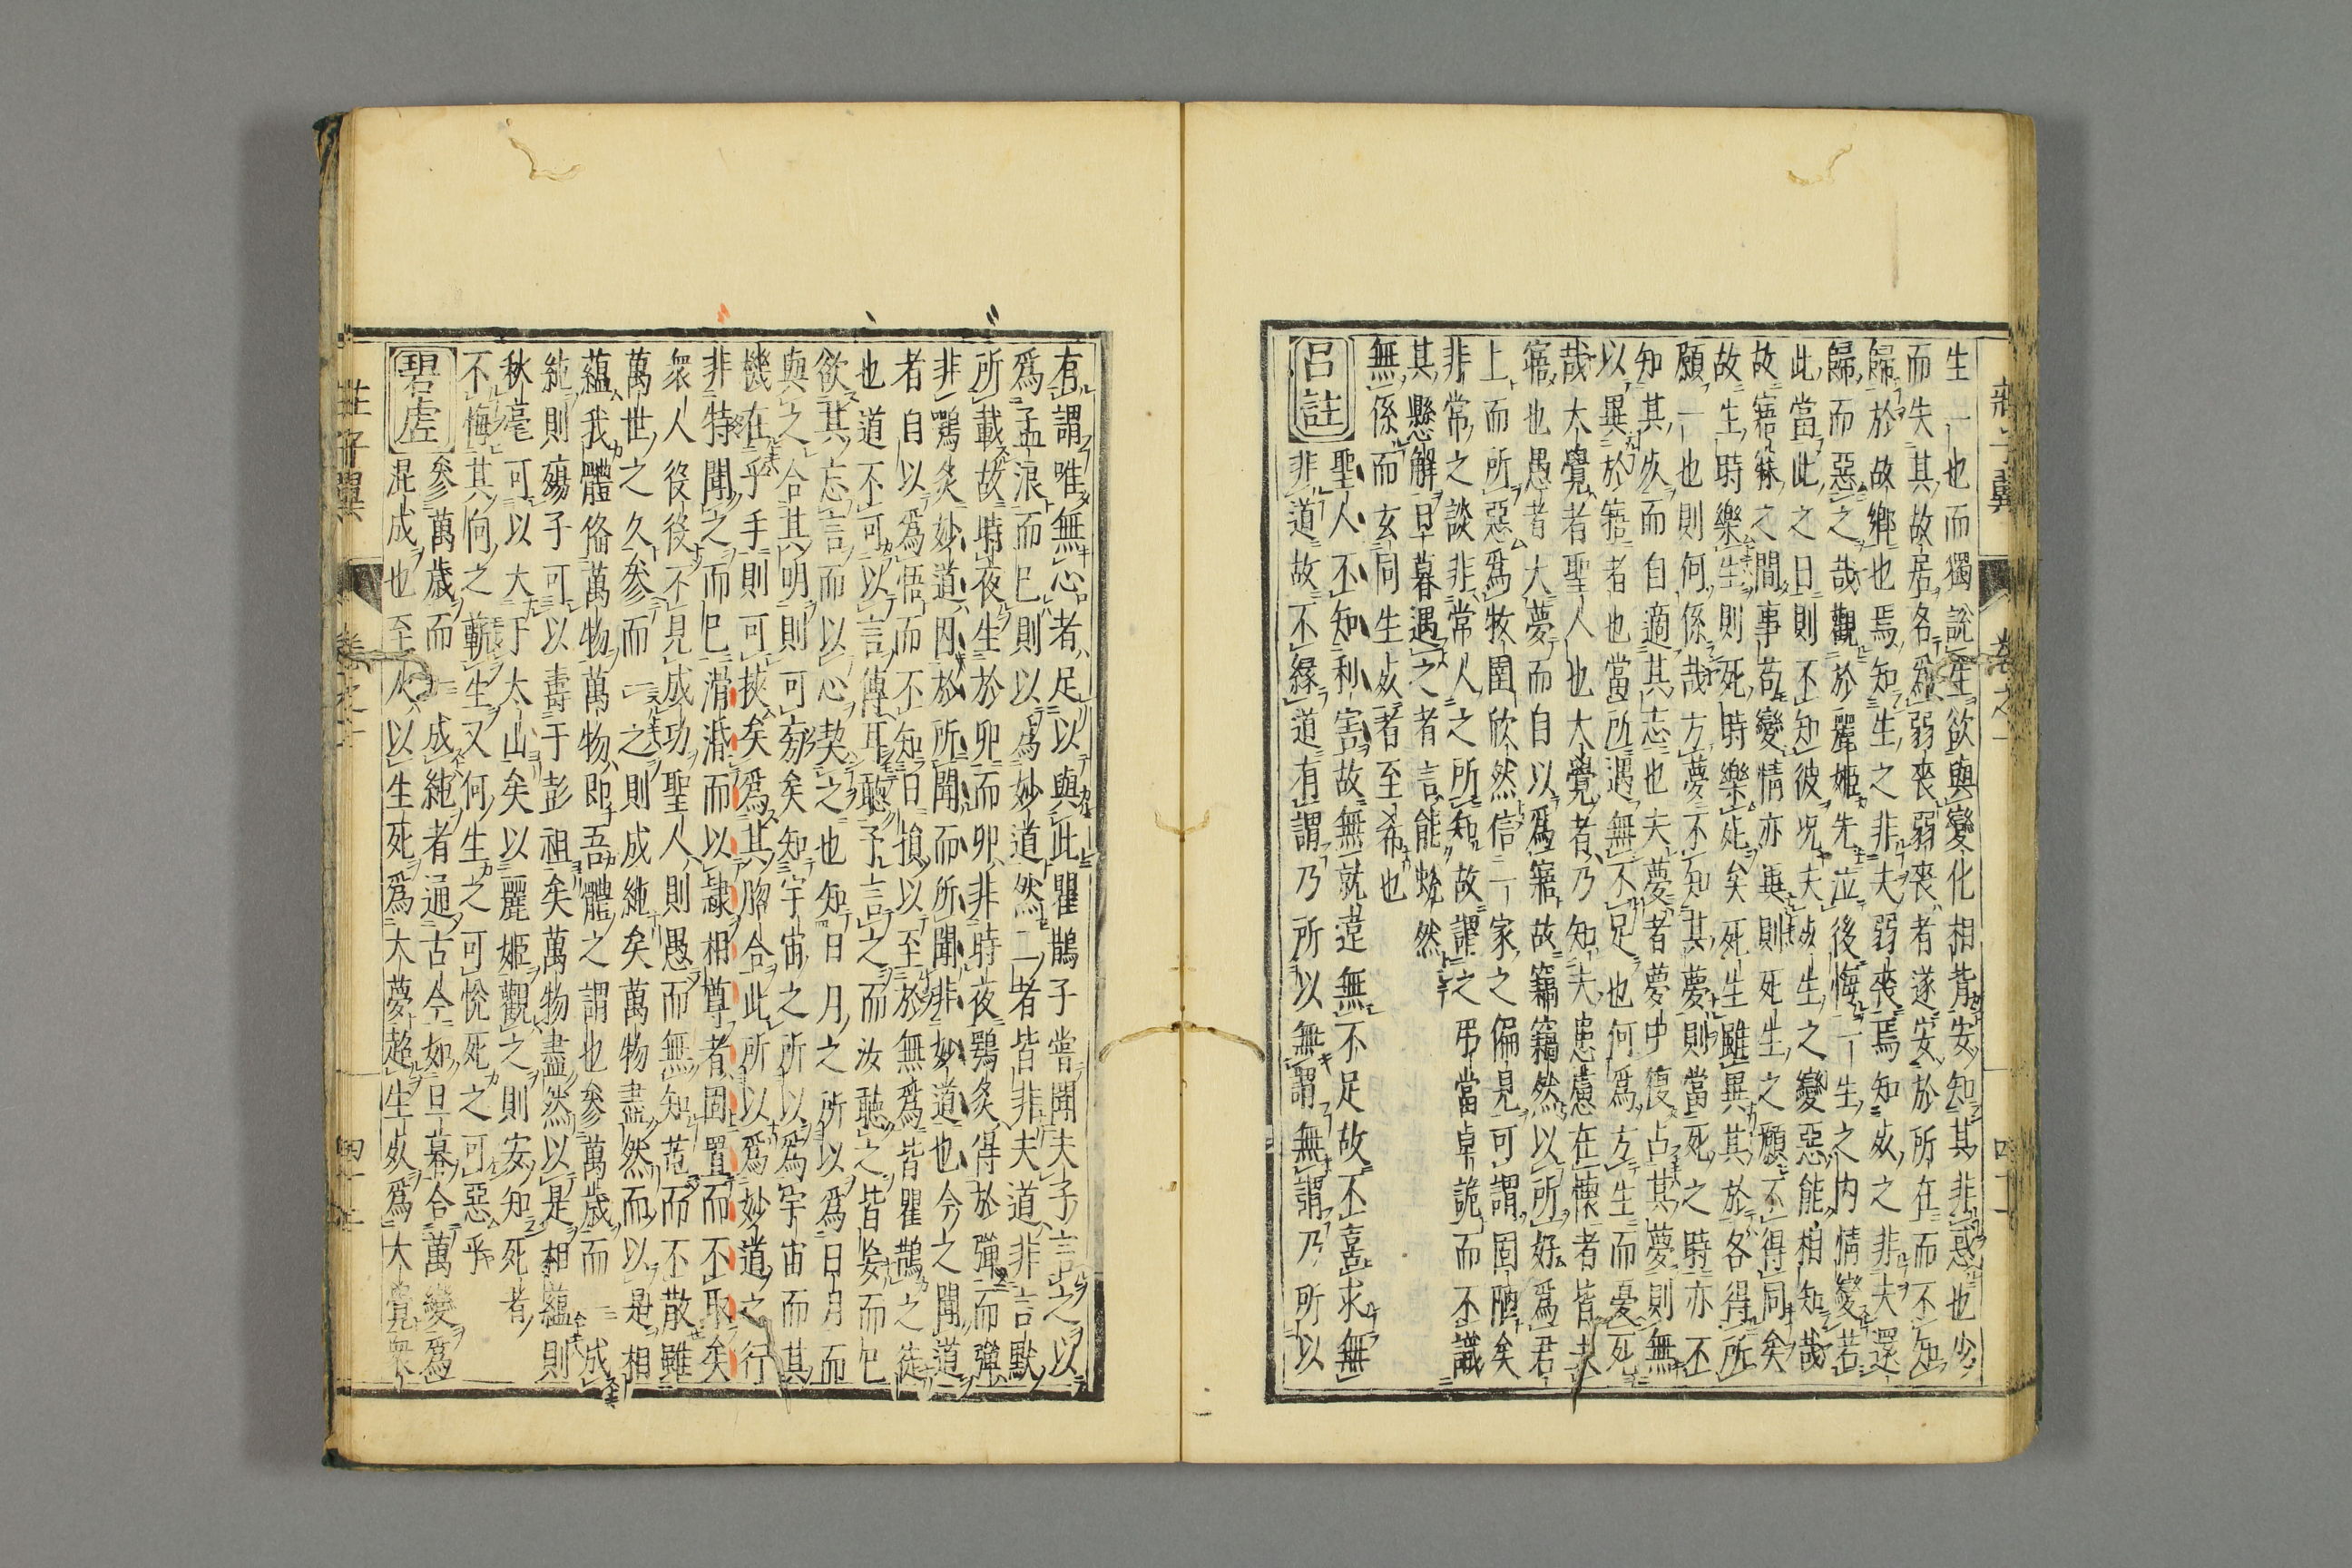 生一也而獨說生欲與變化相背安知其非惑也少
而失其故居名爲弱喪弱喪者遂安於所在而不知
歸於故鄉也焉知生之非夫弱喪焉知死之非夫還
歸而惡之哉觀於麗姬先泣後悔一生之內情變若
此當此之日則不知彼况夫死生之變惡能相知哉
故寤寐之間事苟變情亦異則死生之願不得同矣
故生時樂生則死時樂死矣死生雖異其於各得所
願一也則何係哉方夢不知其夢則當死之時亦不
知其死而自適其志也夫夢者夢中復占其夢則無
以異於寤者也當所遇無不足也何爲方生而憂死
哉大覺者聖人也大覺者乃知夫患慮在懷者皆未
寤也愚者大夢而自以爲寤故竊竊然以所好爲君
上而所惡爲牧圉欣然信一家之偏見可謂固陋矣
非常之談非常人之所知故謂之弔當卓詭而不識
其懸解旦暮遇之者言能蛻然
無係而玄同生死者至希也
呂註 聖人不知利害故無就違無不足故不喜求無
非道故不緣道有謂乃所以無謂無謂乃所以
有謂唯無心者足以與此瞿鵲子嘗聞夫子言之以
爲孟浪而已則以爲妙道然二者皆非夫道非言默
所載故時夜生於卵而卵非時夜鴞炙得於彈而彈
非鴞炙妙道因於所聞而所聞非妙道也今之聞道
者自以爲悟而不知日損以至於無爲皆瞿鵲之徒
也道不可以言傳耳聽予言之而汝聽之皆妄而已
欲其忘言而以心契之也知日月之所以爲日月而
與之合其明則可旁矣知宇宙之所以爲宇宙而其
機在乎手則可挾矣爲其脗合此所以爲妙道之行
非特聞之而已滑涽而以隸相尊者固置而不取矣
衆人役役不見成功聖人則愚而無知芚而不散雖
萬世之久參而一之則成純矣萬物盡然而以是相
蘊我體脩萬物萬物即吾體之謂也參萬歲而一成
純則殤子可以壽于彭祖矣萬物盡然以是相蘊則
秋毫可以大于太山矣以麗姬觀之則安知死者
不悔其何之蘄生又何生之可悅死之可惡乎
碧虛 參萬歲而一成純者通古今如旦暮合萬變爲
混成也至人以生死爲大夢超生死爲大覺衆
莊子翼 卷之一 四十二
莊子翼 卷之一 四十三